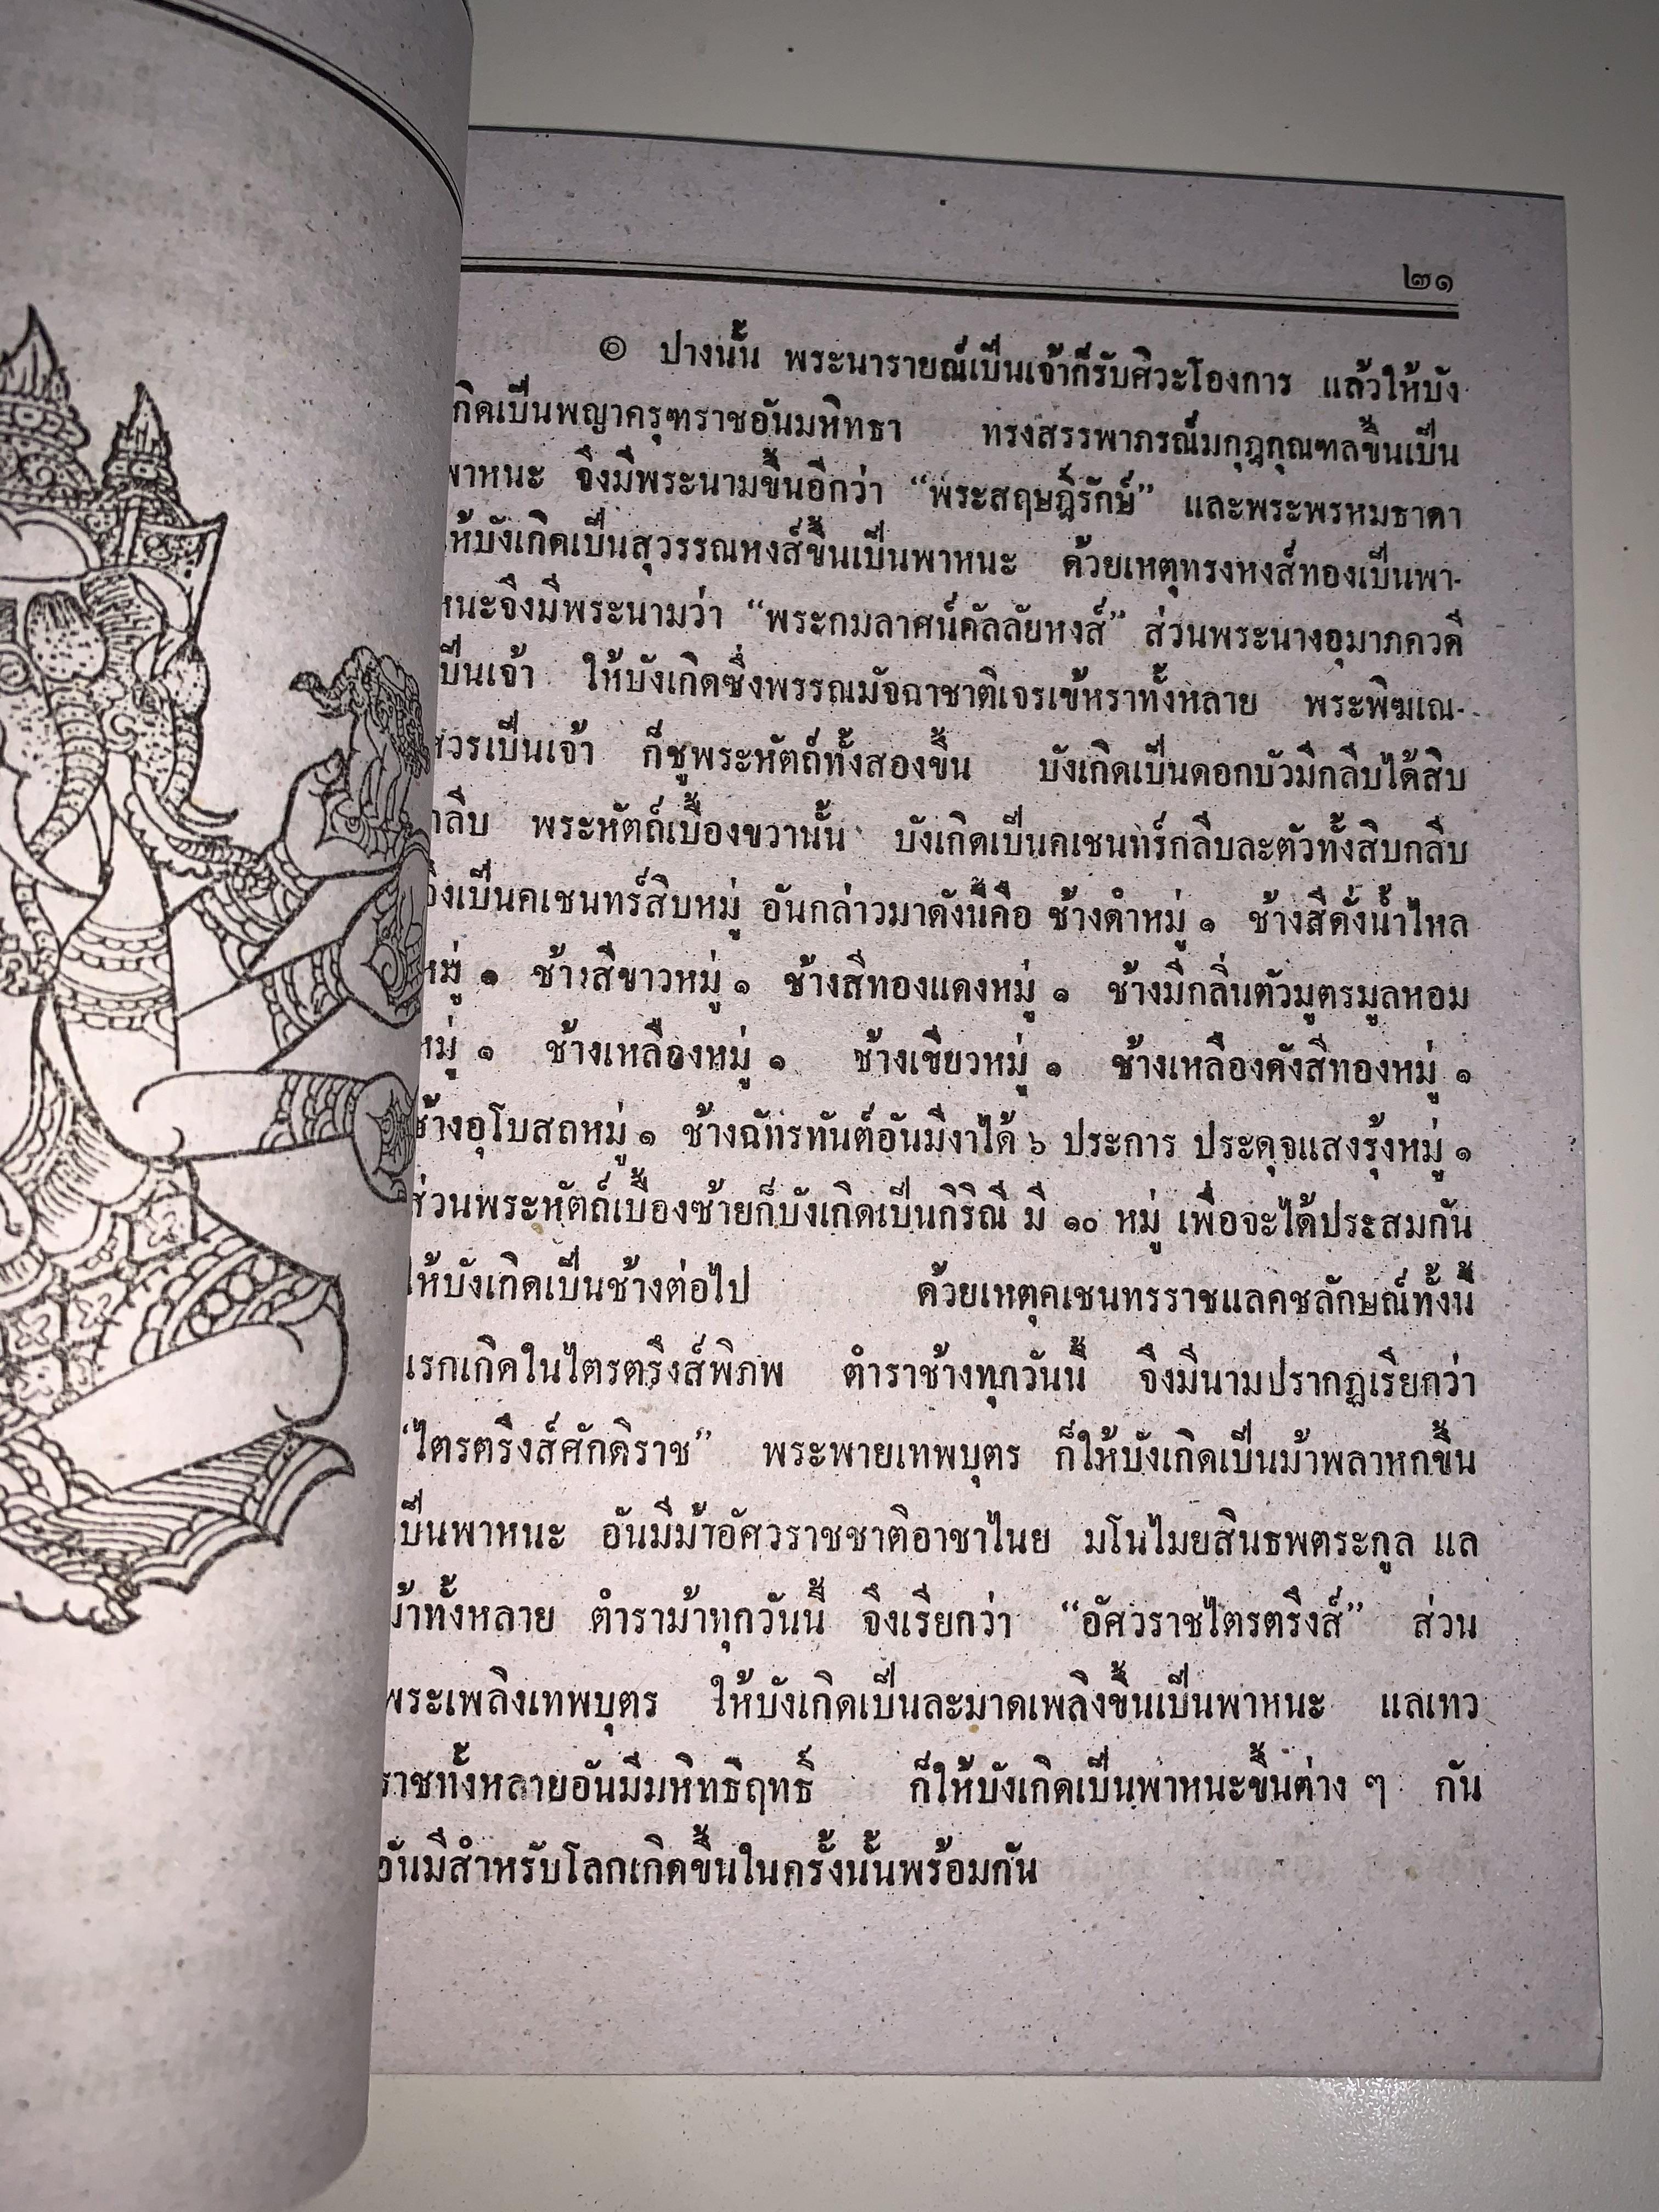 ๒๑
๏ ปางนั้น พระนารายณ์เป็นเจ้าก็รับศิวะโองการ แล้วให้บัง-
เกิดเป็นพญาครุฑราชอันมหิทธา ทรงสรรพาภรณ์มกุฎกุณฑลขึ้นเป็น
พาหนะ จึงมีพระนามขึ้นอีกว่า “พระสฤษฎิ์รักษ์” และพระพรหมธาดา
ให้บังเกิดเป็นสุวรรณหงส์ขึ้นเป็นพาหนะ ด้วยเหตุทรงหงส์ทองเป็นพา-
หนะจึงมีพระนามว่า “พระกมลาศน์คัลลัยหงส์” ส่วนพระนางอุมาภควดี
เป็นเจ้า ให้บังเกิดซึ่งพรรณมัจฉาชาติเจรเข้หราทั้งหลาย พระพิฆเณ-
ศวรเป็นเจ้า ก็ชูพระหัตถ์ทั้งสองขึ้น บังเกิดเป็นดอกบัวมีกลีบได้สิบ
กลีบ พระหัตถ์เบื้องขวานั้น บังเกิดเป็นคเชนทร์กลีบละตัวทั้งสิบกลีบ
จึงเป็นคเชนทร์สิบหมู่ อันกล่าวมาดังนี้คือ ช้างดำหมู่ ๑ ช้างสีคั่งน้ำไหล
หมู่ ๑ ช้างสีขาวหมู่ ๑ ช้างสีทองแดงหมู่ ๑ ช้างมีกลิ่นตัวมูตรมูลหอม
หมู่ ๑ ช้างเหลืองหมู่ ๑ ช้างเขียวหมู่ ๑ ช้างเหลืองดังสีทองหมู่ ๑
ช้างอุโบสถหมู่ ๑ ช้างฉัททรทันต์อันมีงาได้ ๖ ประการ ประดุจแสงรุ้งหมู่ ๑
ส่วนพระหัตถ์เบื้องซ้ายก็บังเกิดเป็นกิริณี มี ๑๐ หมู่ เพื่อจะได้ประสมกัน
ให้บังเกิดเป็นช้างต่อไป ด้วยเหตุคเชนทรราชแลคชลักษณ์ทั้งนี้
แรกเกิดในไตรตรึงส์พิภพ ตำราช้างทุกวันนี้ จึงมีนามปรากฏเรียกว่า
“ไตรตรึงส์ศักดิราช” พระพายเทพบุตร ก็ให้บังเกิดเป็นม้าพลาหกขึ้น
เป็นพาหนะ อันมีม้าอัศวราชชาติอาชาไนย มโนไมยสินธพตระกูล แล
ม้าทั้งหลาย ตำราม้าทุกวันนี้ จึงเรียกว่า “อัศวราชไตรตรึงส์” ส่วน
พระเพลิงเทพบุตร ให้บังเกิดเป็นละมาดเพลิงขึ้นเป็นพาหนะ แลเทว
ราชทั้งหลายอันมีมหิทธิฤทธิ์ ก็ให้บังเกิดเป็นพาหนะขึ้นต่าง ๆ กัน
อันมีสำหรับโลกเกิดขึ้นในครั้งนั้นพร้อมกัน